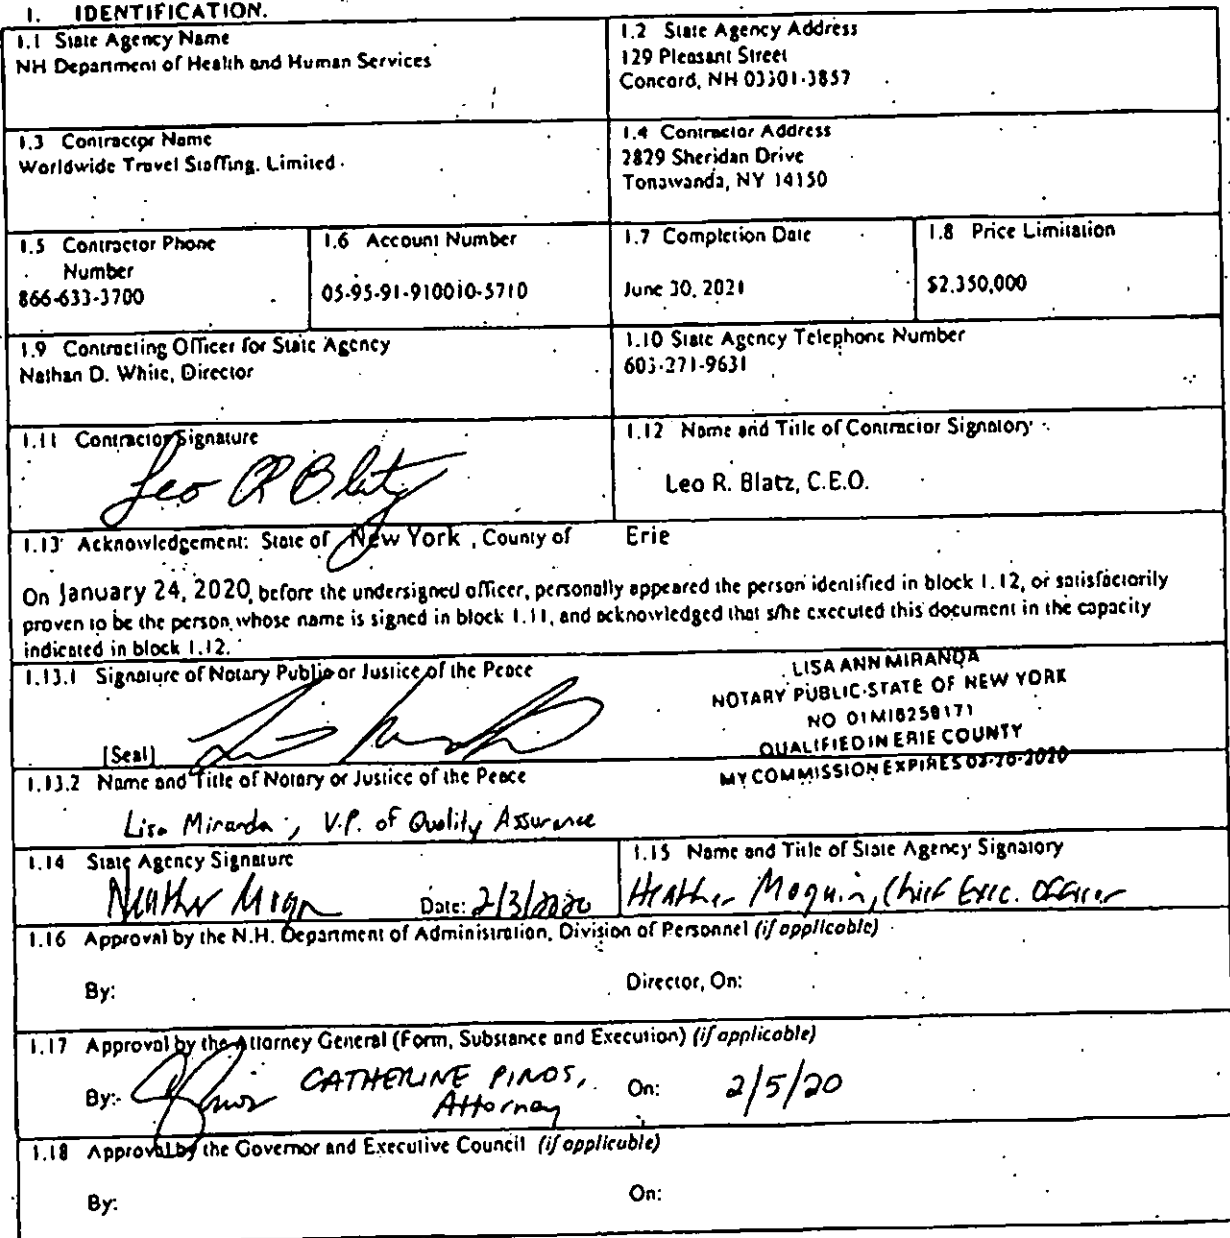 1. IDENTIFICATION.
1.1 State Agency Name
NH Department of Health and Human Services
1.2 State Agency Address
129 Pleasant Street
Concord, NH 03301-3857
1.3 Contractor Name
Worldwide Travel Staffing, Limited
1.4 Contractor Address
2829 Sheridan Drive
Tonawanda, NY 14150
1.5 Contractor Phone
Number
866-633-3700
1.6 Account Number
05-95-91-910010-5710
1.7 Completion Date
June 30, 2021
1.8 Price Limitation
$2,350,000
1.9 Contracting Officer for State Agency
Nathan D. White, Director
1.10 State Agency Telephone Number
603-271-9631
1.11 Contractor Signature
Leo R Blatz
1.12 Name and Title of Contractor Signatory
Leo R. Blatz, C.E.O.
1.13 Acknowledgement: State of New York , County of Erie
On January 24, 2020, before the undersigned officer, personally appeared the person identified in block 1.12, or satisfactorily
proven to be the person whose name is signed in block 1.11, and acknowledged that s/he executed this document in the capacity
indicated in block 1.12.
1.13.1 Signature of Notary Public or Justice of the Peace
[Seal]
LISA ANN MIRANDA
NOTARY PUBLIC-STATE OF NEW YORK
NO 01MI6258171
QUALIFIED IN ERIE COUNTY
MY COMMISSION EXPIRES
1.13.2 Name and Title of Notary or Justice of the Peace
Lisa Miranda, V.P. of Quality Assurance
1.14 State Agency Signature
Date: 2/3/2020
1.15 Name and Title of State Agency Signatory
Heather Moquin, Chief Exec. Officer
1.16 Approval by the N.H. Department of Administration, Division of Personnel (if applicable)
By: Director, On:
1.17 Approval by the Attorney General (Form, Substance and Execution) (if applicable)
By: CATHERINE PINOS, On: 2/5/20
Attorney
1.18 Approval by the Governor and Executive Council (if applicable)
By: On: